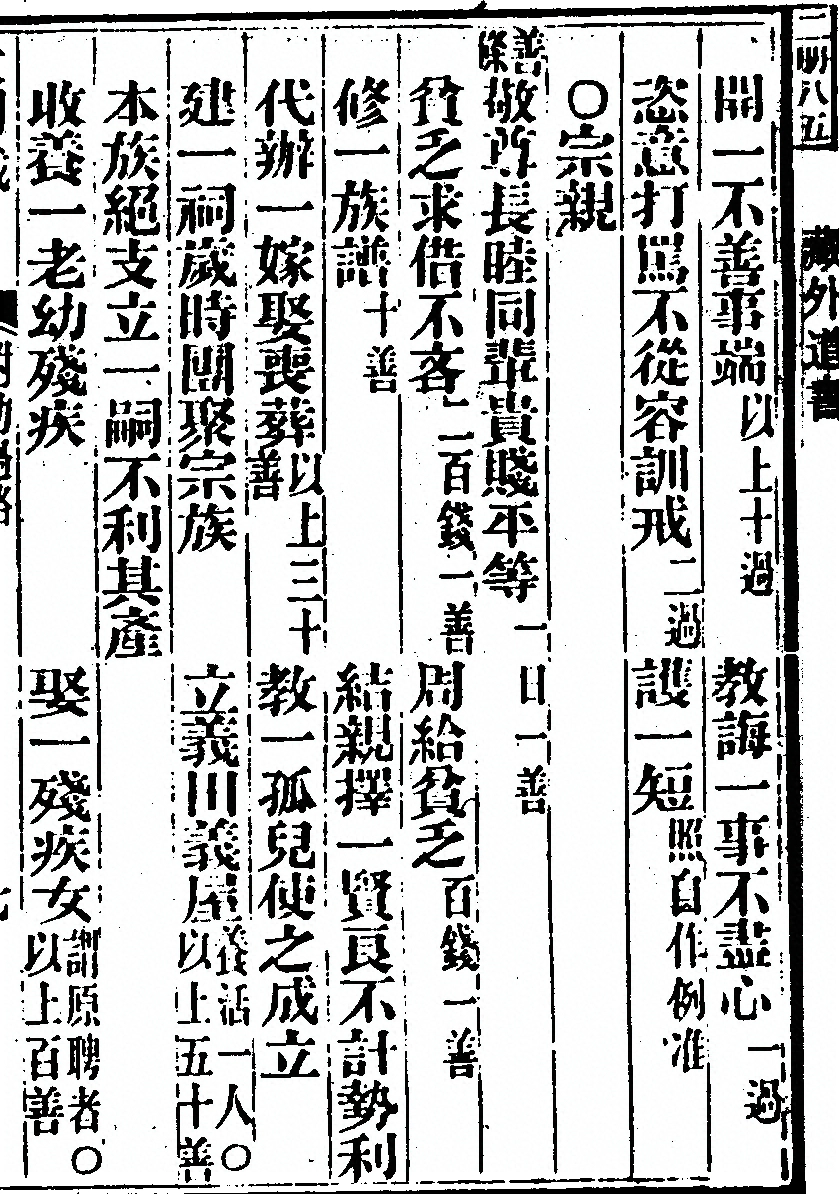 二明八五
藏外道書
開一不善事端以上十過　教誨一事不盡心一過
恣意打罵不從容訓戒二過　護一短照自作例准
○宗親
善條
敬尊長睦同輩貴賤平等一日一善
貧乏求借不吝二百錢一善　周給貧乏百錢一善
修一族譜十善　結親擇一賢良不計勢利
代辦一嫁娶喪葬以上三十善　教一孤兒使之成立
建一祠歲時團聚宗族　立義田義屋養活一人○以上五十善
本族絕支立一嗣不利其產
收養一老幼殘疾　娶一殘疾女謂原聘者○以上百善